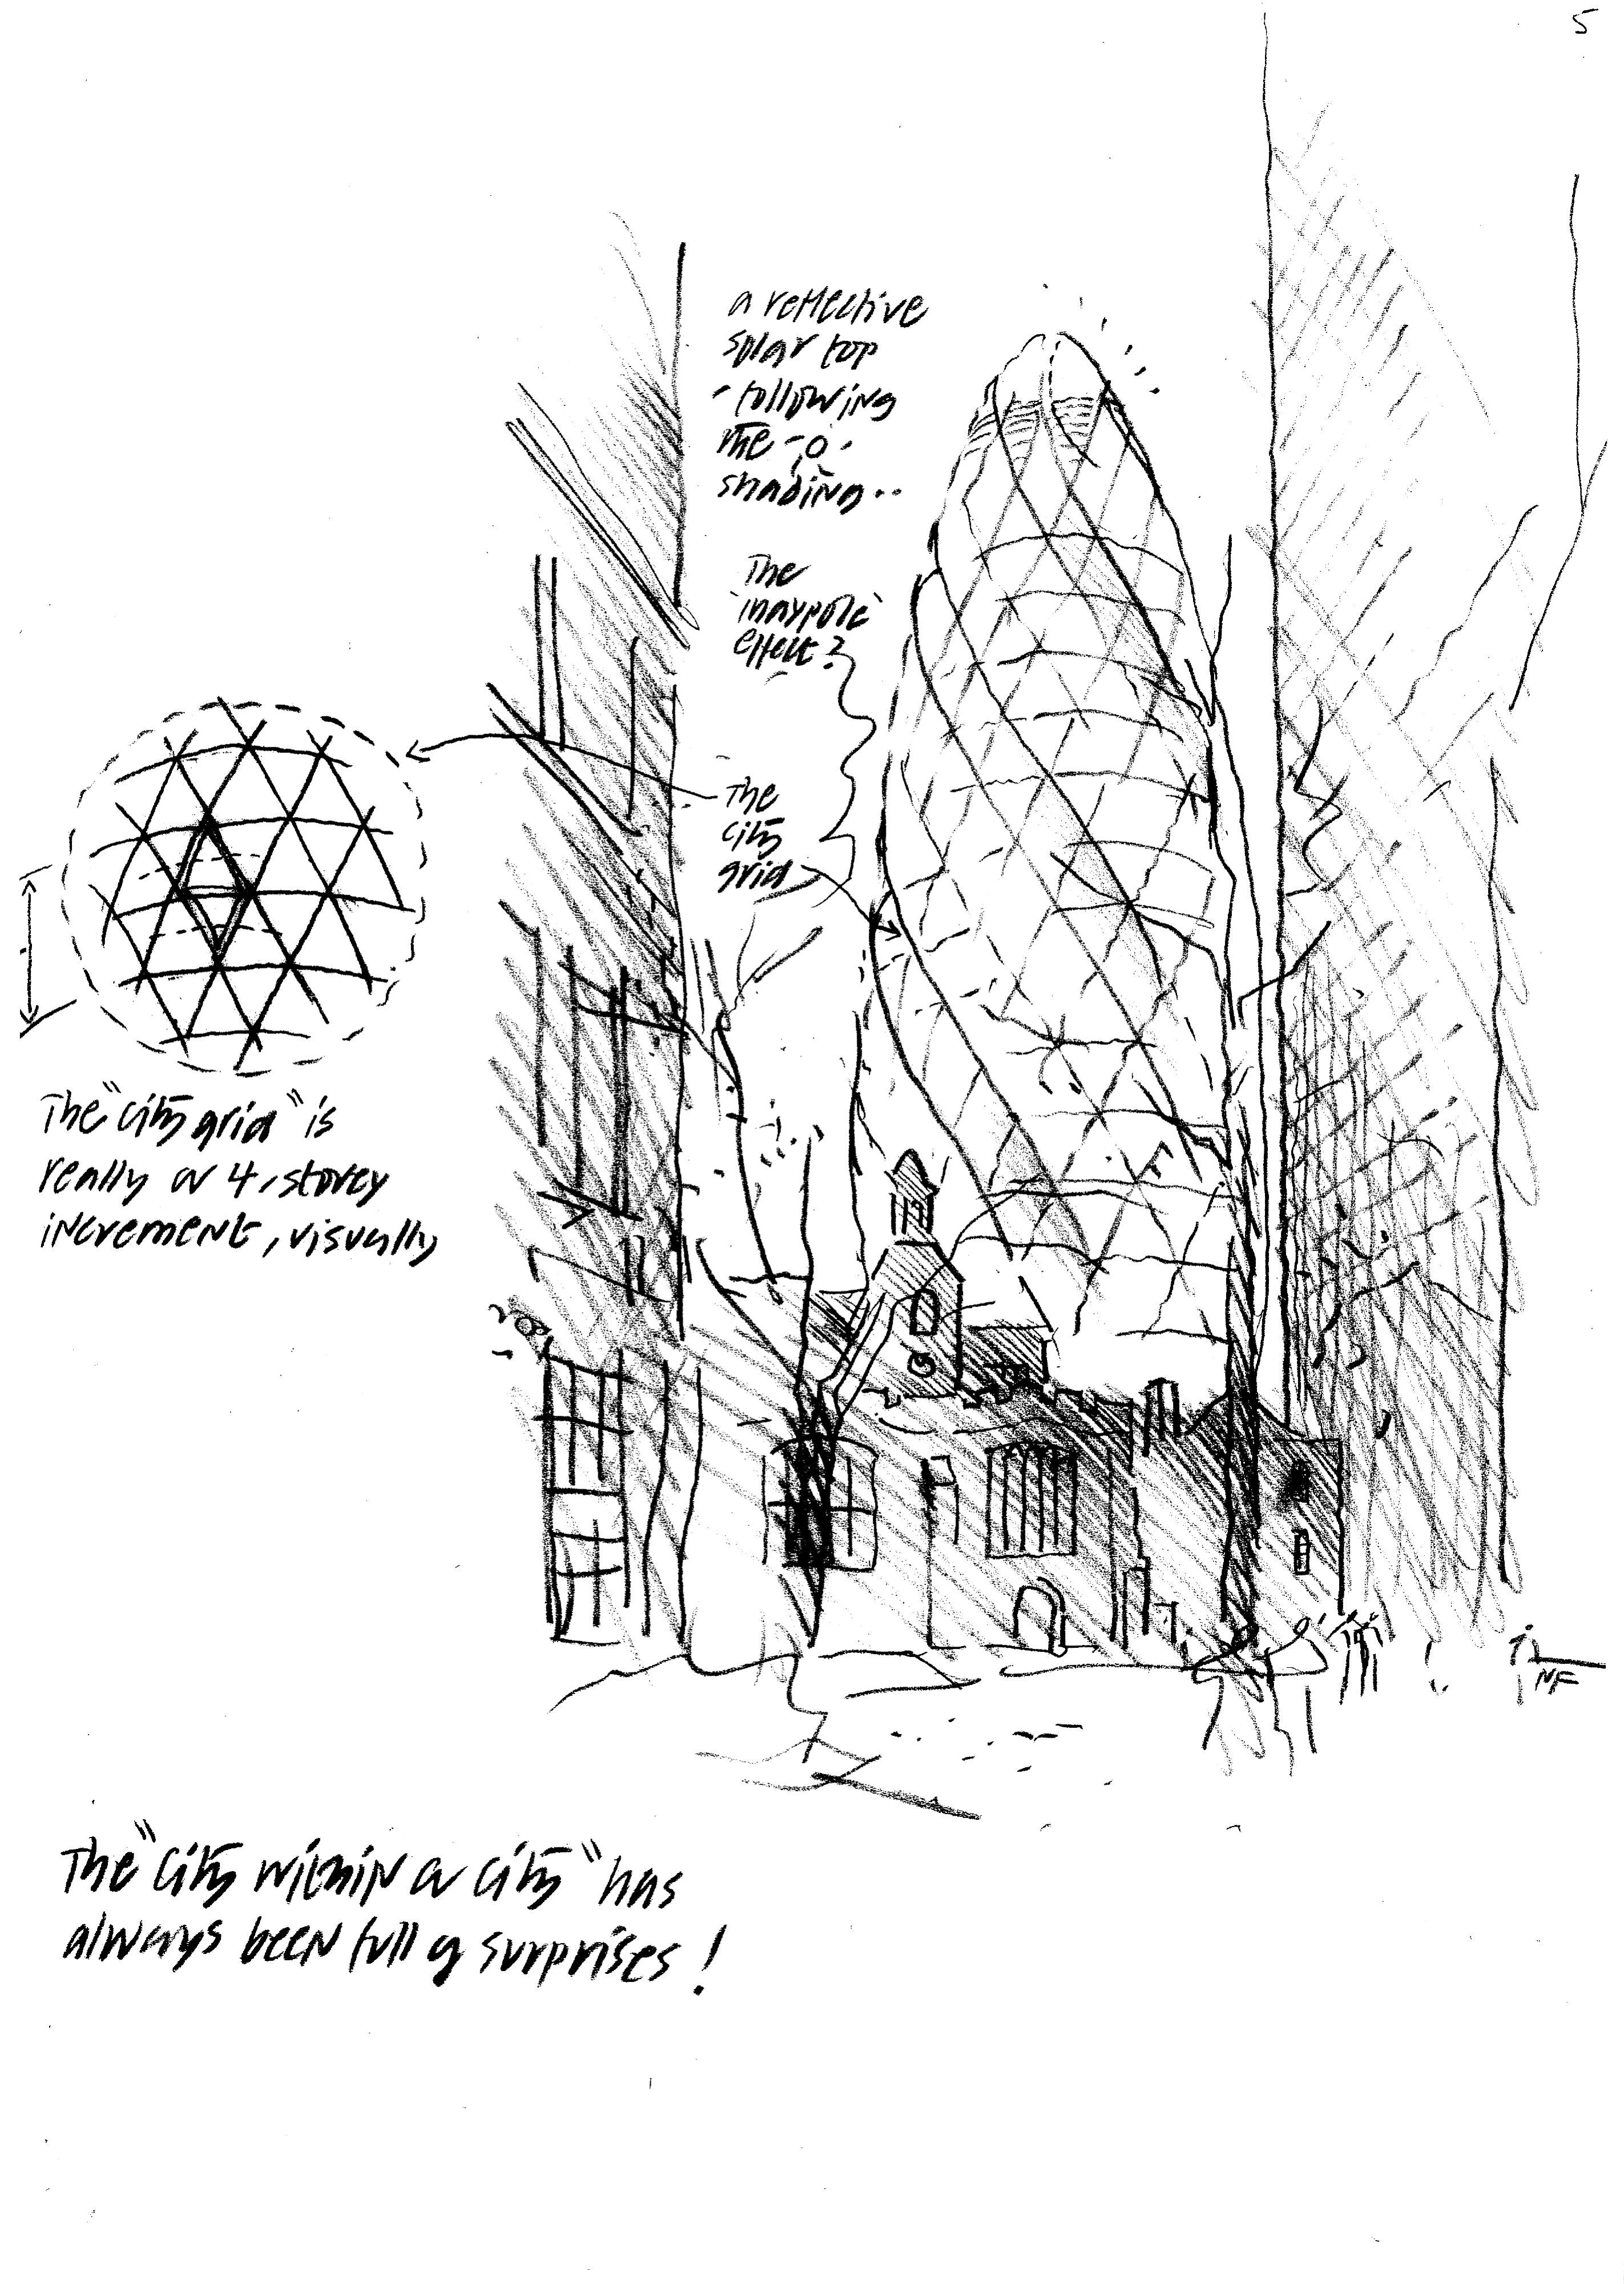 5
a reflective
solar top
- following
the
shading..
The
'maypole'
effect?
The
city
grid
The "city grid" is
really a 4, storey
increment, visually
NF
The "city within a city" has
always been full of surprises!